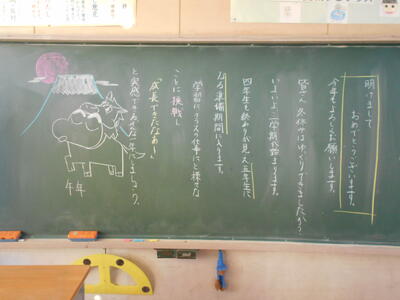 明けまして
おめでとうございます。
今年もよろしくお願いします。
皆さん、冬休みはゆっくりできましたか？
いよいよ、三学期が始まります。
四年生も終わりが見え、五年生に
なる準備期間に入ります。
学習にクラスの仕事にと様々な
ことに挑戦し
「成長できたなあ！」
と実感できるような一年にしましょう。
午年